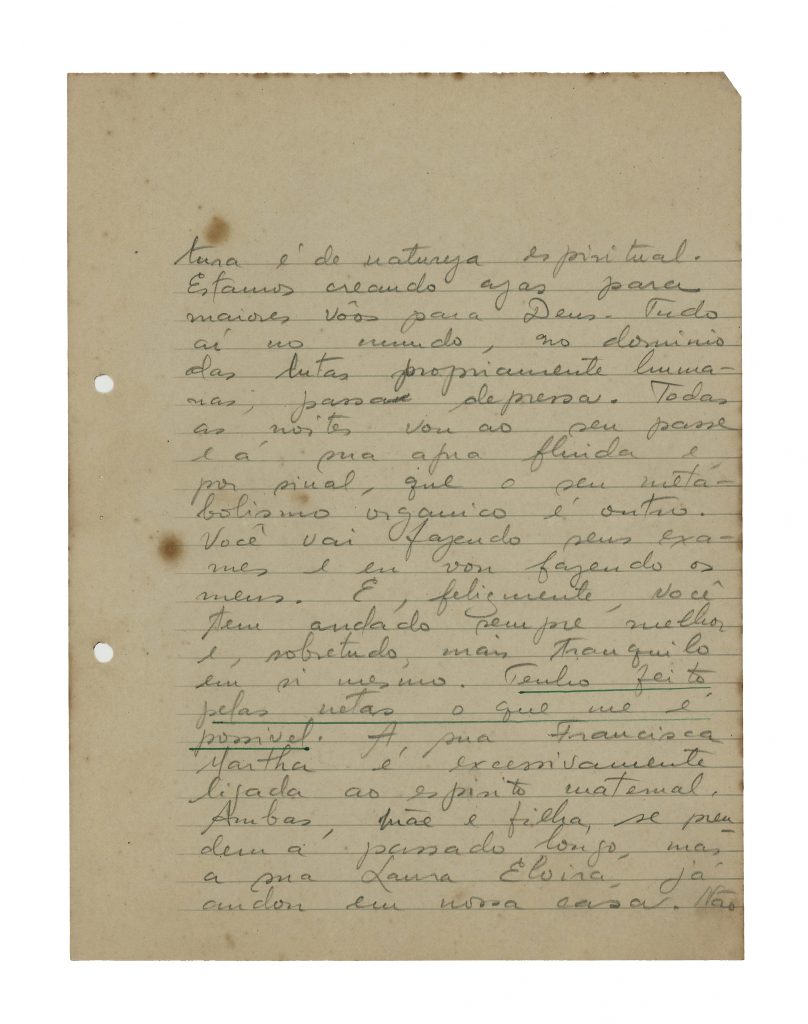 tura é de natureza espiritual.
Estamos creando azas para
maiores vôos para Deus. Tudo
aí no mundo, no dominio
das lutas propriamente huma-
nas, passa depressa. Todas
as noites vou ao seu passe
e á sua agua fluida e,
por sinal, que o seu metá-
bolismo organico é outro.
Você vai fazendo seus exa-
mes e eu vou fazendo os
meus. E, felizmente, você
tem andado sempre melhor
e, sobretudo, mais tranquilo
em si mesmo. Tenho feito
pelas netas o que me é
possivel. A, sua Francisca
Martha é excessivamente
ligada ao espirito maternal.
Ambas, mãe e filha, se pren
dem á passado longo, mas
a sua Laura Elvira já
andou em nossa casa. Não